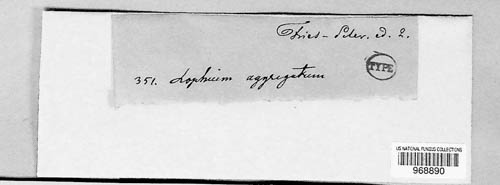 Fries - Scler. d. 2.
TYPE
351. Lophium aggregatum
US NATIONAL FUNGUS COLLECTIONS
968890